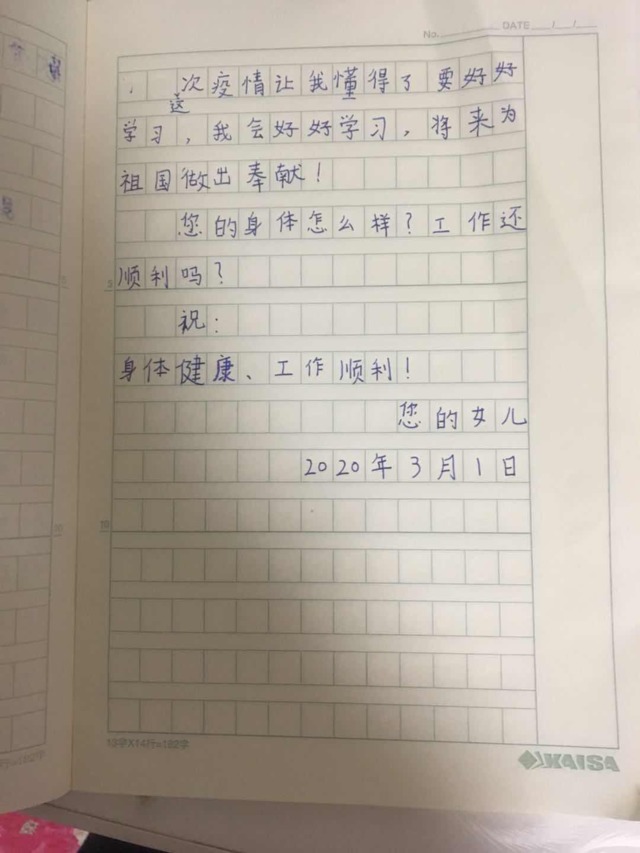 No.
DATE / /
这次疫情让我懂得了要好好
学习，我会好好学习，将来为
祖国做出奉献！
您的身体怎么样？工作还
顺利吗？
5
祝：
身体健康、工作顺利！
您的女儿
2020年3月1日
10
13字X14行=182字
KAISA